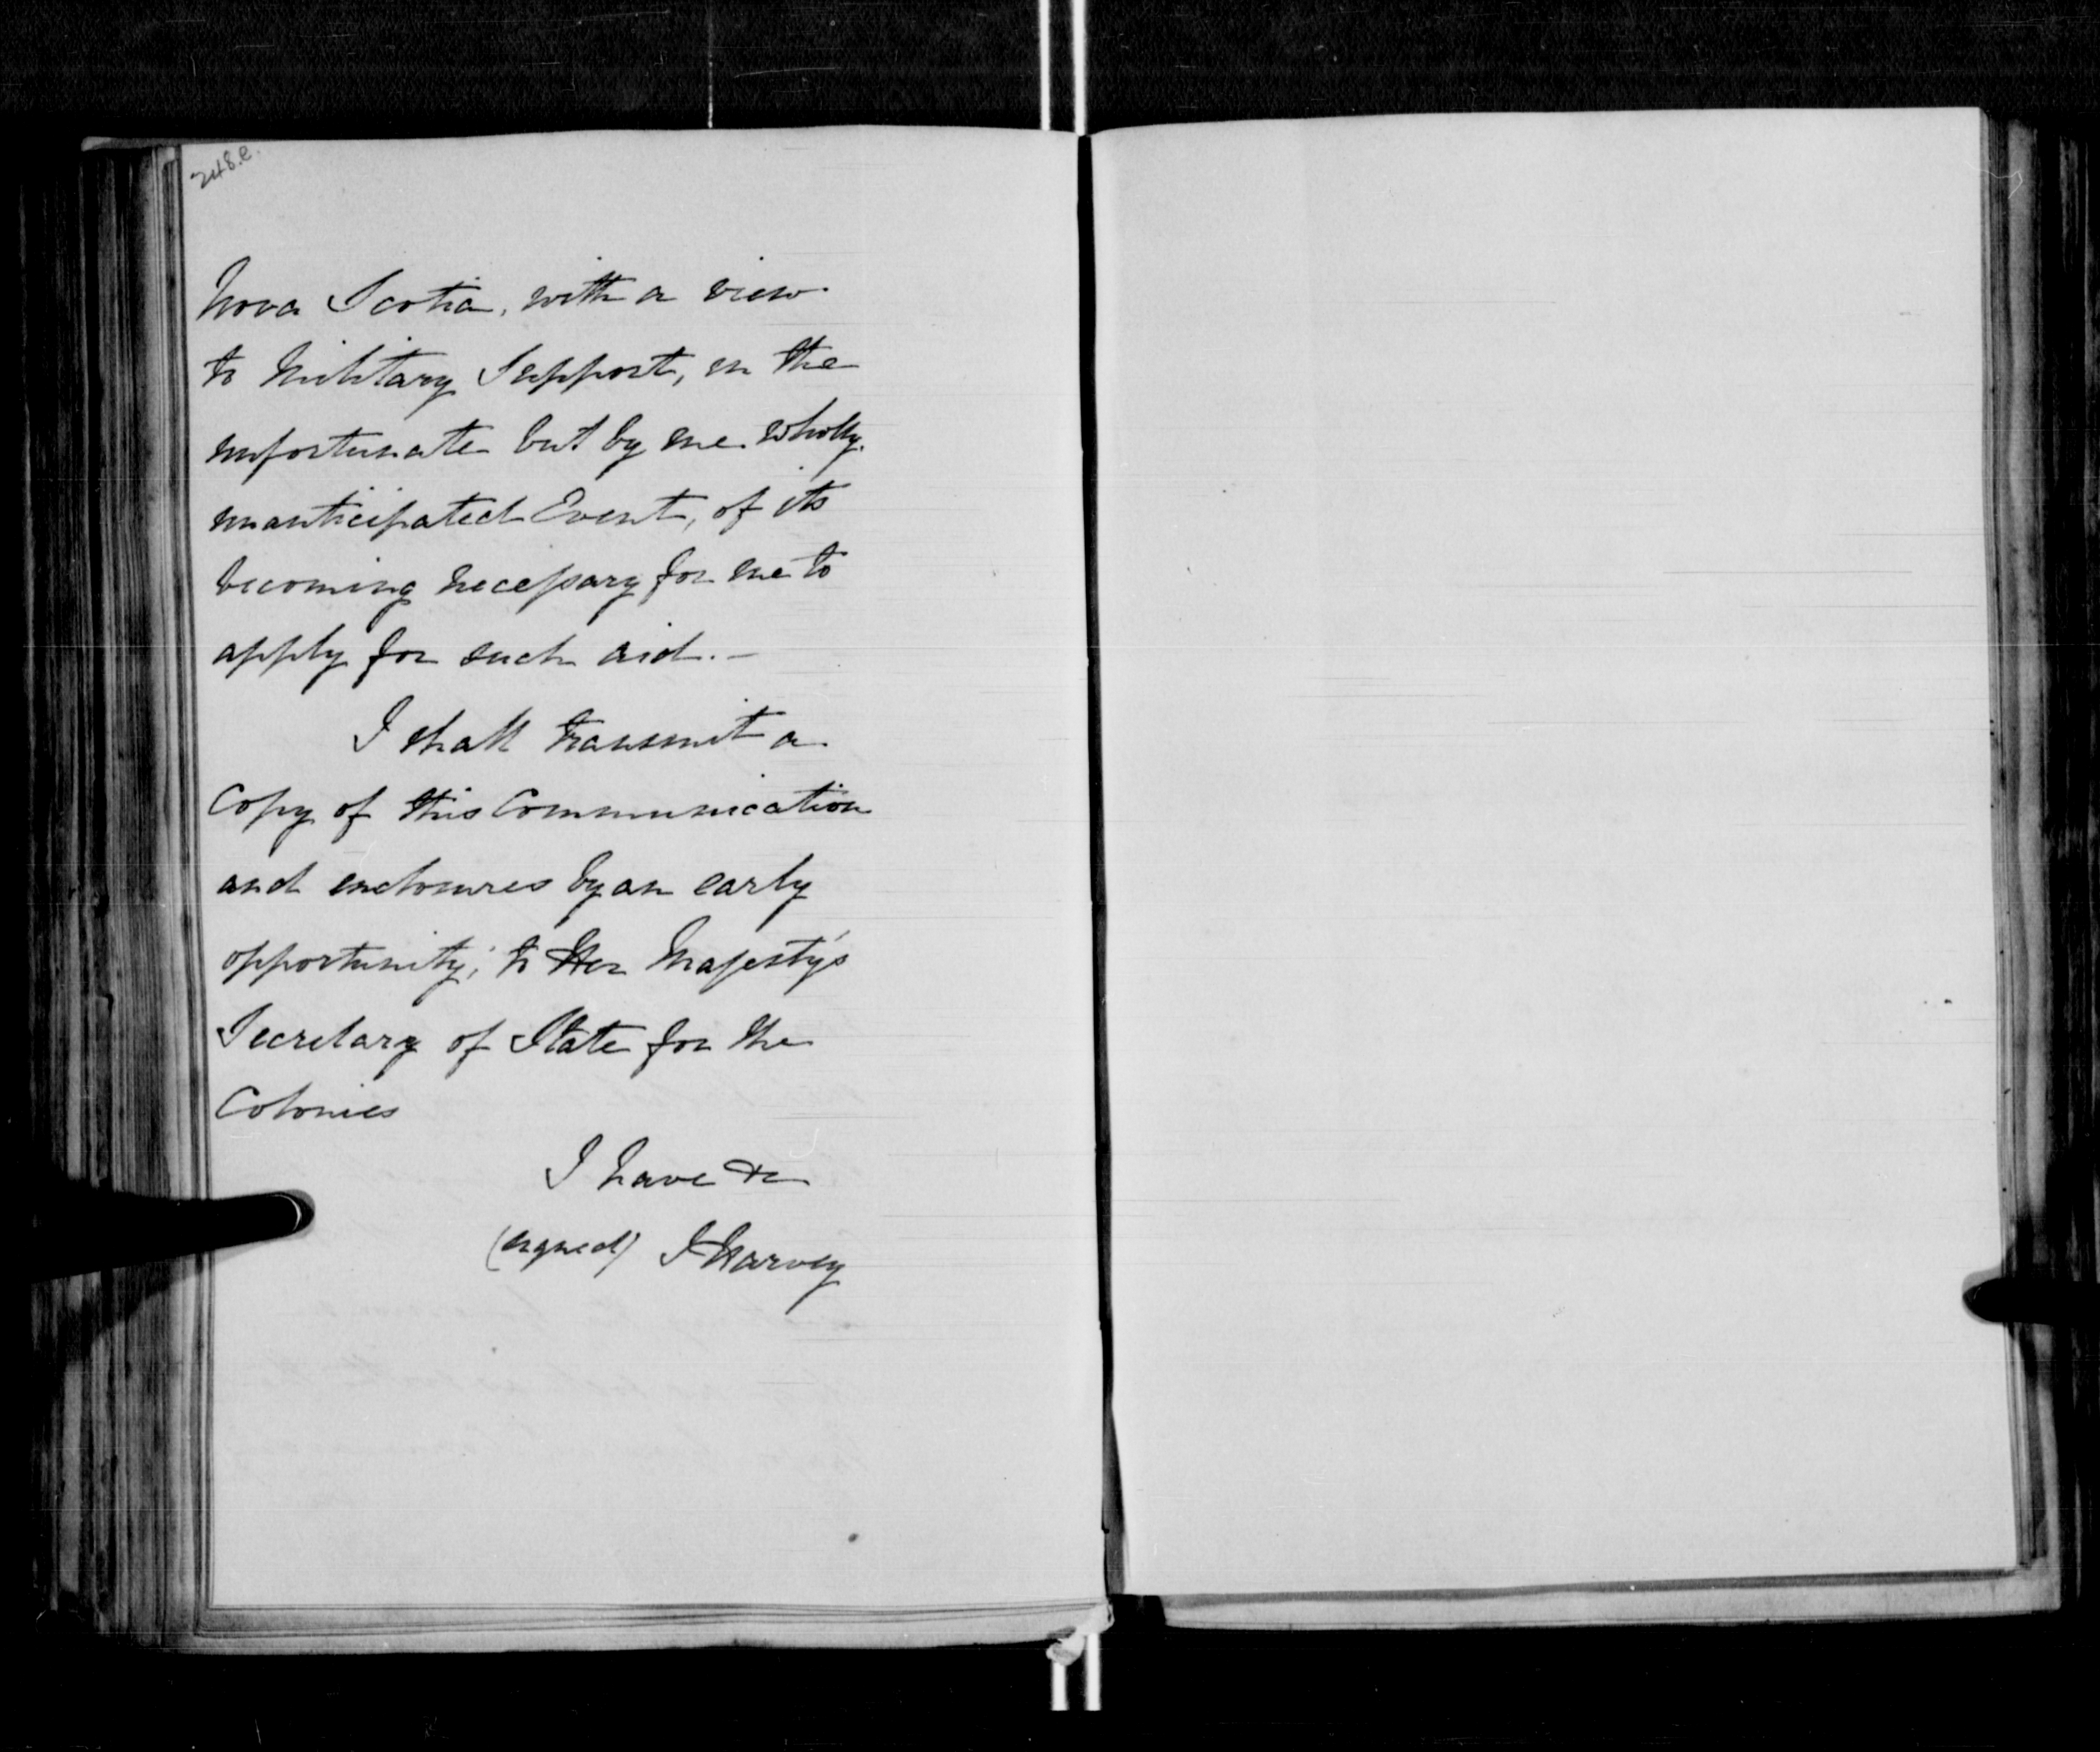 248.e.
Nova Scotia, with a view
to Military Support, in the
unfortunate but by me wholly
unanticipated Event, of its
becoming necessary for me to
apply for such aid. —
I shall transmit a
Copy of this Communication
and enclosures by an early
opportunity, to Her Majesty's
Secretary of State for the
Colonies
I have &c
(signed) J Harvey